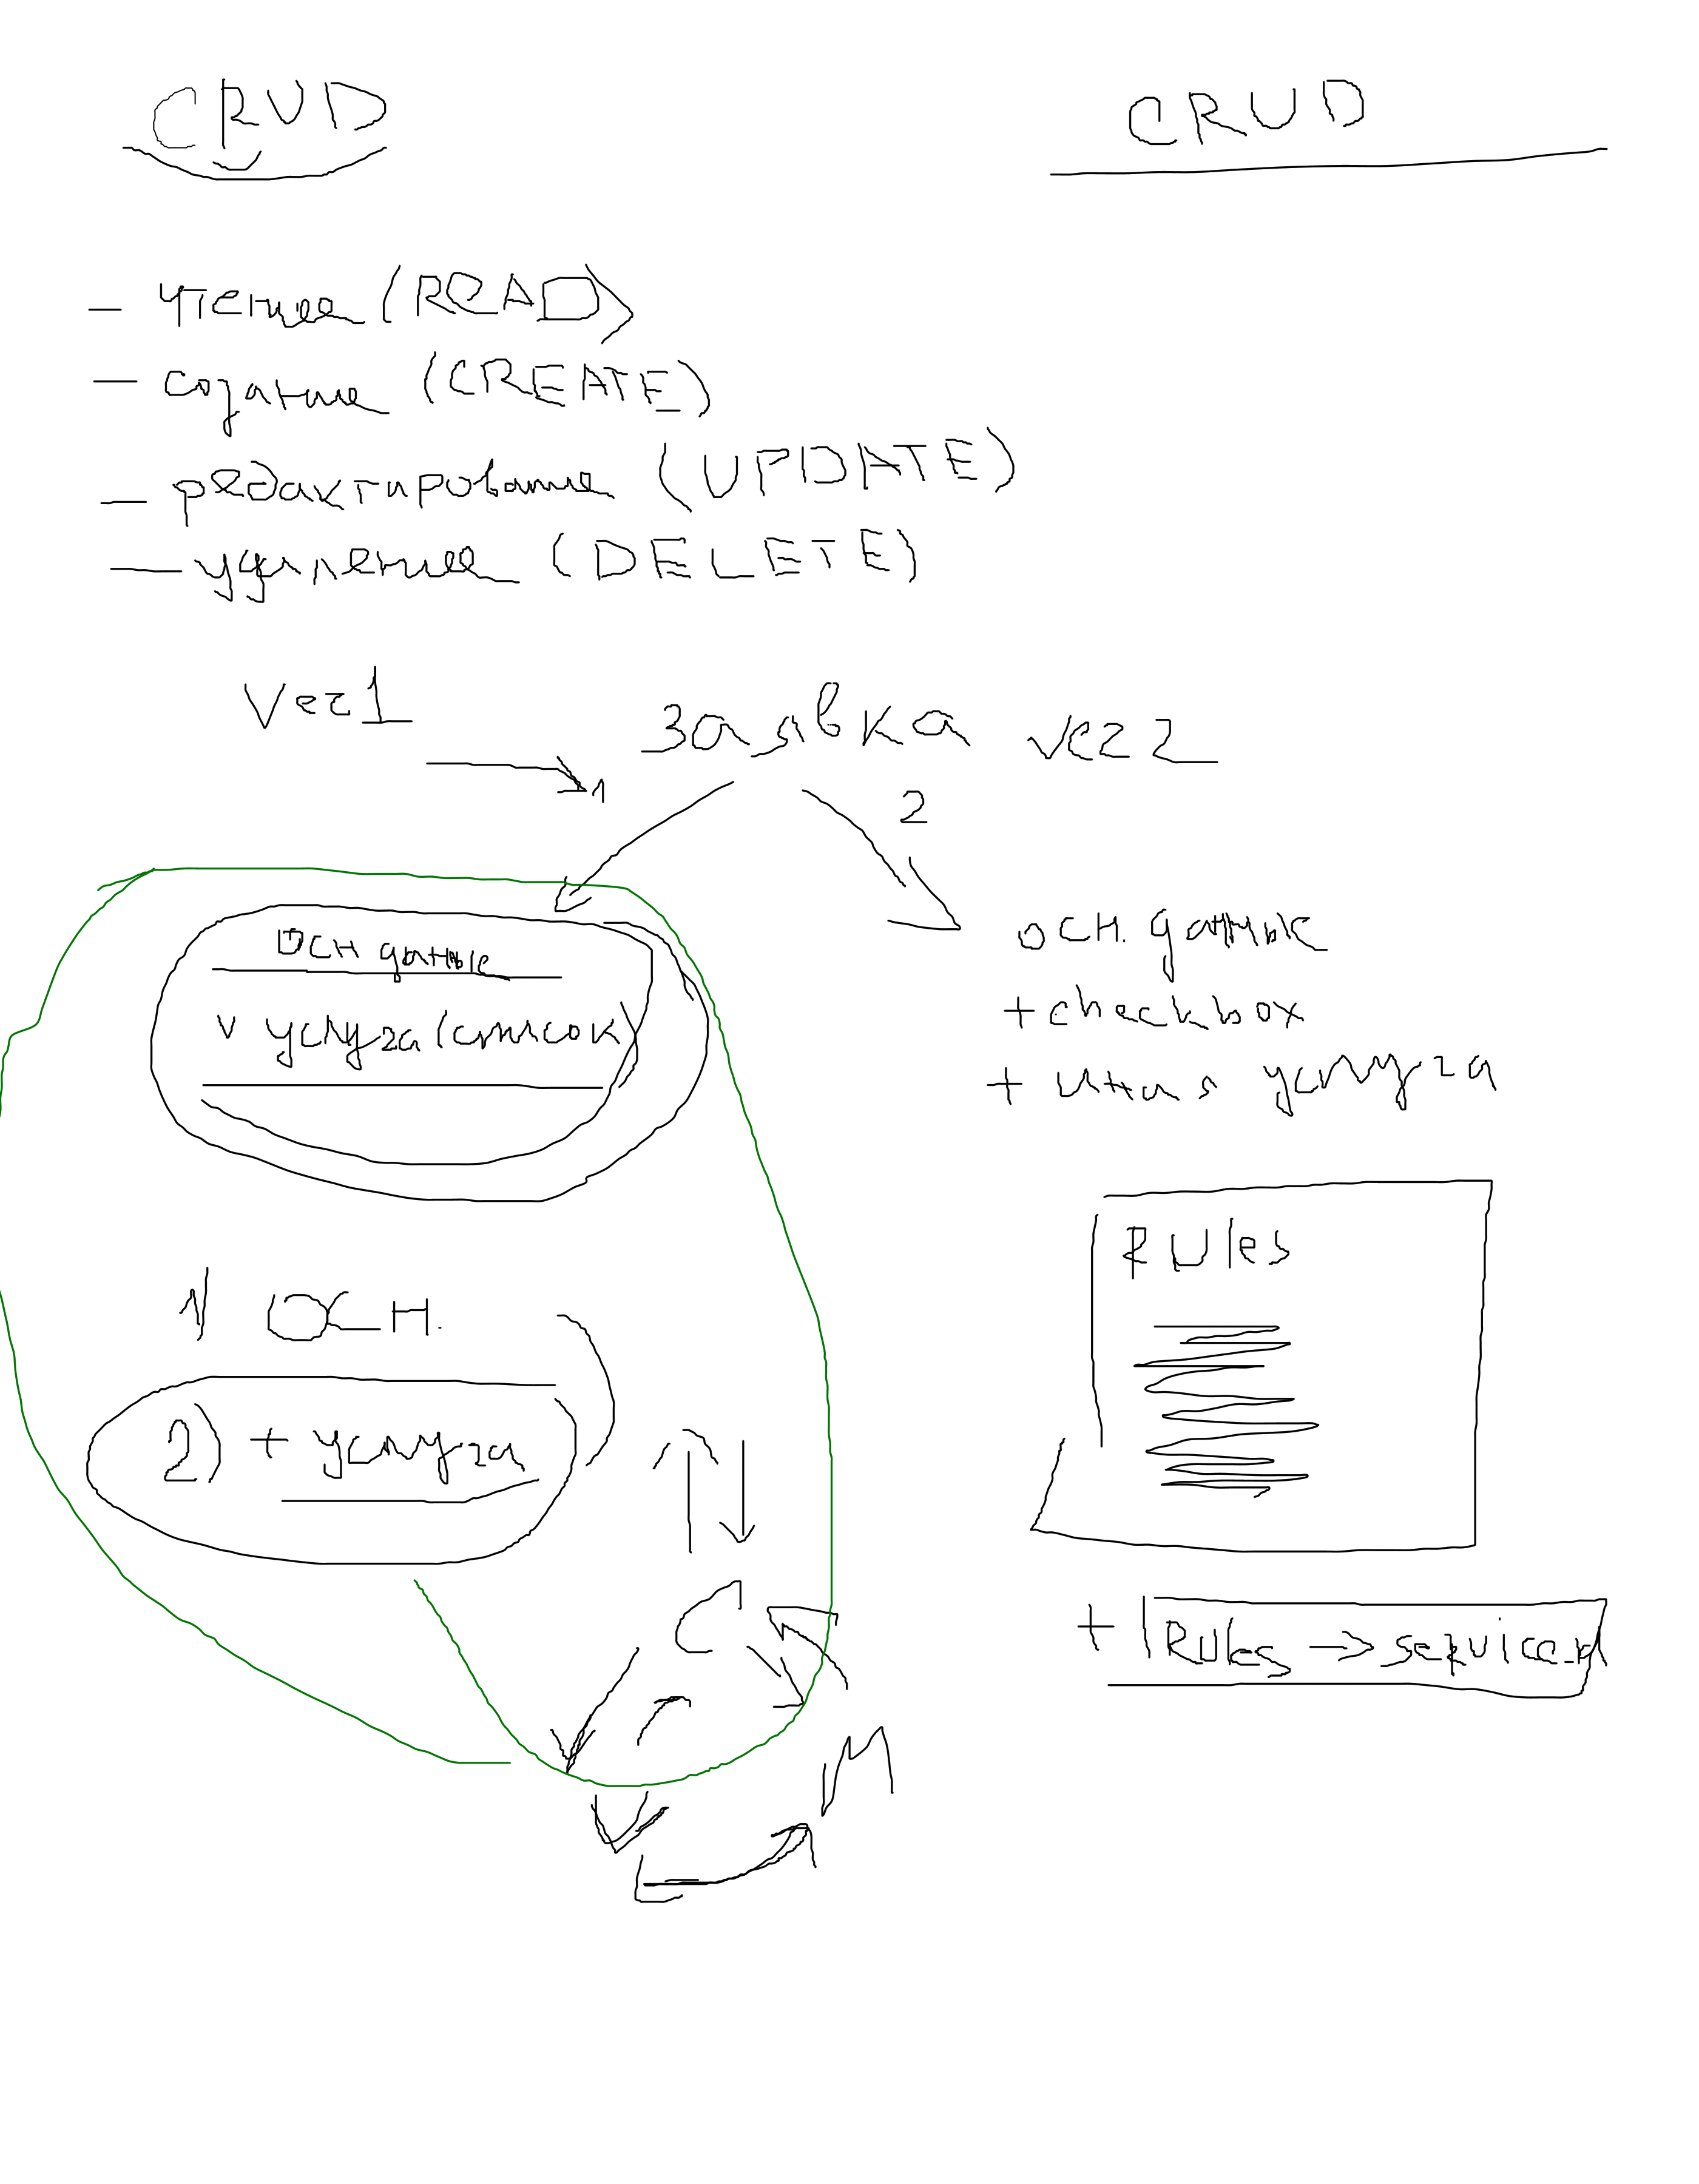 CRUD
CRUD
- чтение (READ)
- создание (CREATE)
- редактирование (UPDATE)
- удаление (DELETE)
Ver1
Заявка ver 2
1
2
осн данные
v услуга (список)
осн. данные
+ checkbox
+ иная услуга
Rules
1) осн.
2) + услуга
C
+ Rules ->
M
V